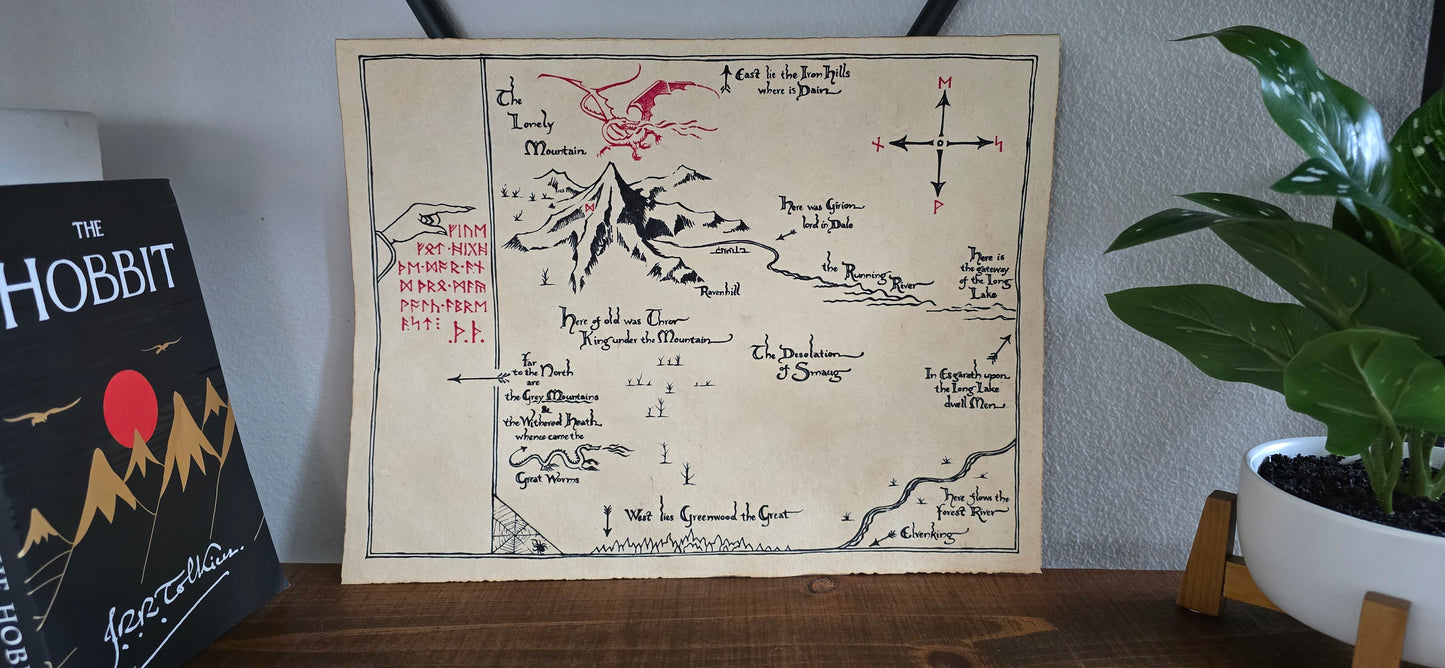 THE
HOBBIT
J.R.R. Tolkien.
The
Lonely
Mountain
East lie the Iron Hills
where is Dain
ᛖ
ᚾ
ᛋ
ᚹ
ᛞ
ᚠᛁᚢᛖ
ᚠᛟᛏ·ᚻᛁᚷᚻ
ᚦᛖ·ᛞᚩᚱ·ᚪᚾ
ᛞ·ᚦᚱᛟ·ᛗᚪᚣ
ᚹᚪᛚᚳ·ᚪᛒᚱᛖ
ᚪᛋᛏ⁝
.ᚦ.ᚦ.
Here was Girion
lord in Dale
the Running
River
Here is
the gateway
of the Long
Lake
Ravenhill
Here of old was Thror
King under the Mountain
The Desolation
of Smaug
Far
to the North
are
the Grey Mountains
&
the Withered Heath
whence came the
Great Worms
In Esgaroth upon
the Long Lake
dwell Men
West lies Greenwood the Great
Here flows the
Forest River
Elvenking